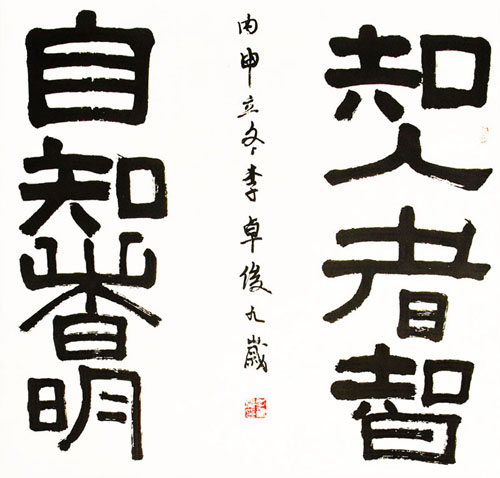 知人者智
丙申立冬李卓俊九歲
自知者明